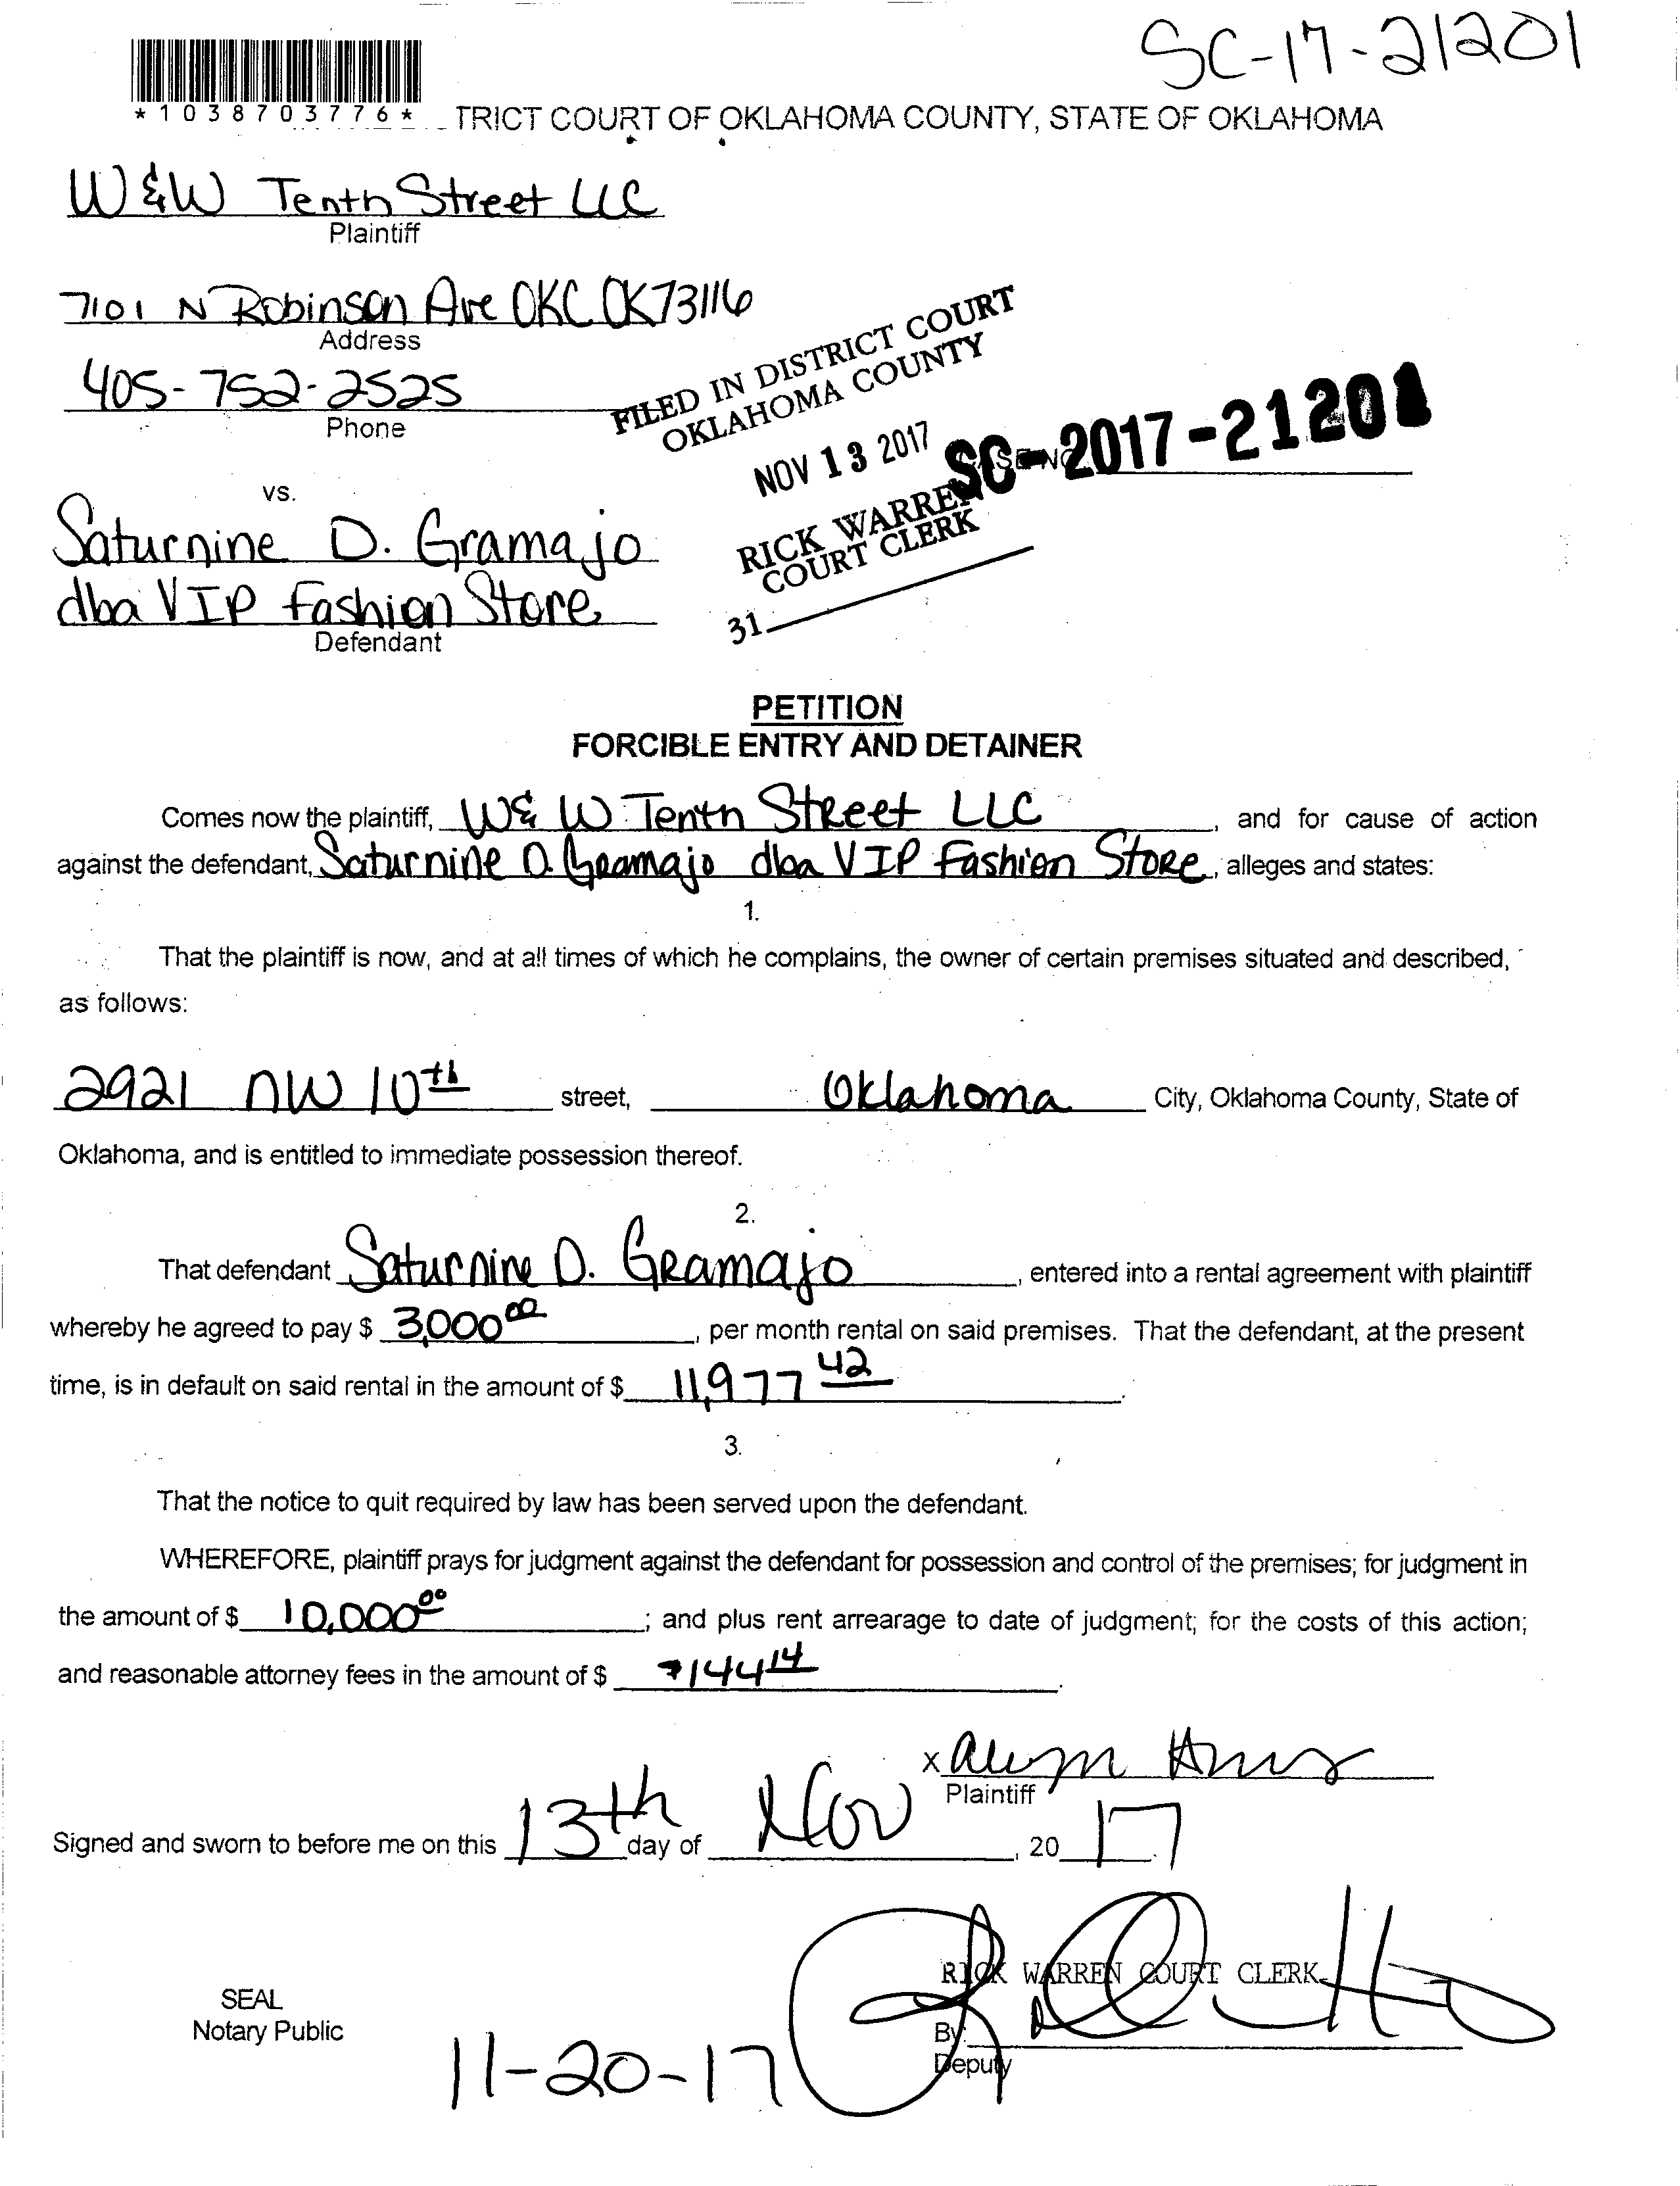 SC-17-21201
*1038703776*
TRICT COURT OF OKLAHOMA COUNTY, STATE OF OKLAHOMA
W & W Tenth Street LLC
Plaintiff
7101 N Robinson Ave OKC OK 73116
Address
405-752-2525
Phone
FILED IN DISTRICT COURT
OKLAHOMA COUNTY
NOV 13 2017
SC-2017-21201
RICK WARREN
COURT CLERK
31
vs.
Saturnine D. Gramajo
dba VIP Fashion Store
Defendant
PETITION
FORCIBLE ENTRY AND DETAINER
Comes now the plaintiff, W & W Tenth Street LLC, and for cause of action
against the defendant, Saturnine D. Gramajo dba VIP Fashion Store, alleges and states:
1.
That the plaintiff is now, and at all times of which he complains, the owner of certain premises situated and described,
as follows:
2921 NW 10th street, Oklahoma City, Oklahoma County, State of
Oklahoma, and is entitled to immediate possession thereof.
2.
That defendant Saturnine D. Gramajo, entered into a rental agreement with plaintiff
whereby he agreed to pay $ 3,000 00, per month rental on said premises. That the defendant, at the present
time, is in default on said rental in the amount of $ 11,977 42.
3.
That the notice to quit required by law has been served upon the defendant.
WHEREFORE, plaintiff prays for judgment against the defendant for possession and control of the premises; for judgment in
the amount of $ 10,000 00; and plus rent arrearage to date of judgment; for the costs of this action;
and reasonable attorney fees in the amount of $ 144 14.
x
Plaintiff
Signed and sworn to before me on this 13th day of Nov, 20 17
RICK WARREN COURT CLERK
SEAL
Notary Public
By:
Deputy
11-20-17